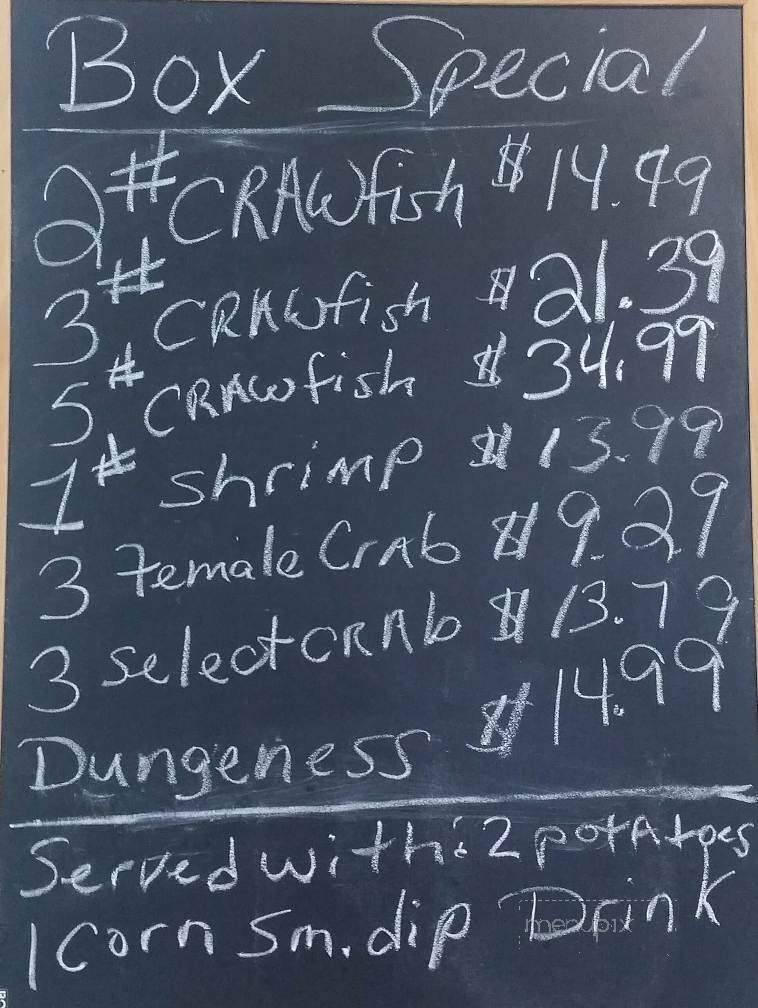 Box Special
2# CRAWfish $14.49
3# CRAWfish $21.39
5# CRAWfish $34.99
1# shrimp $13.99
3 Female CrAb $9.29
3 select CRAb $13.79
Dungeness $14.99
Served with: 2 potAtoes
1 Corn Sm. dip Drink
menupix